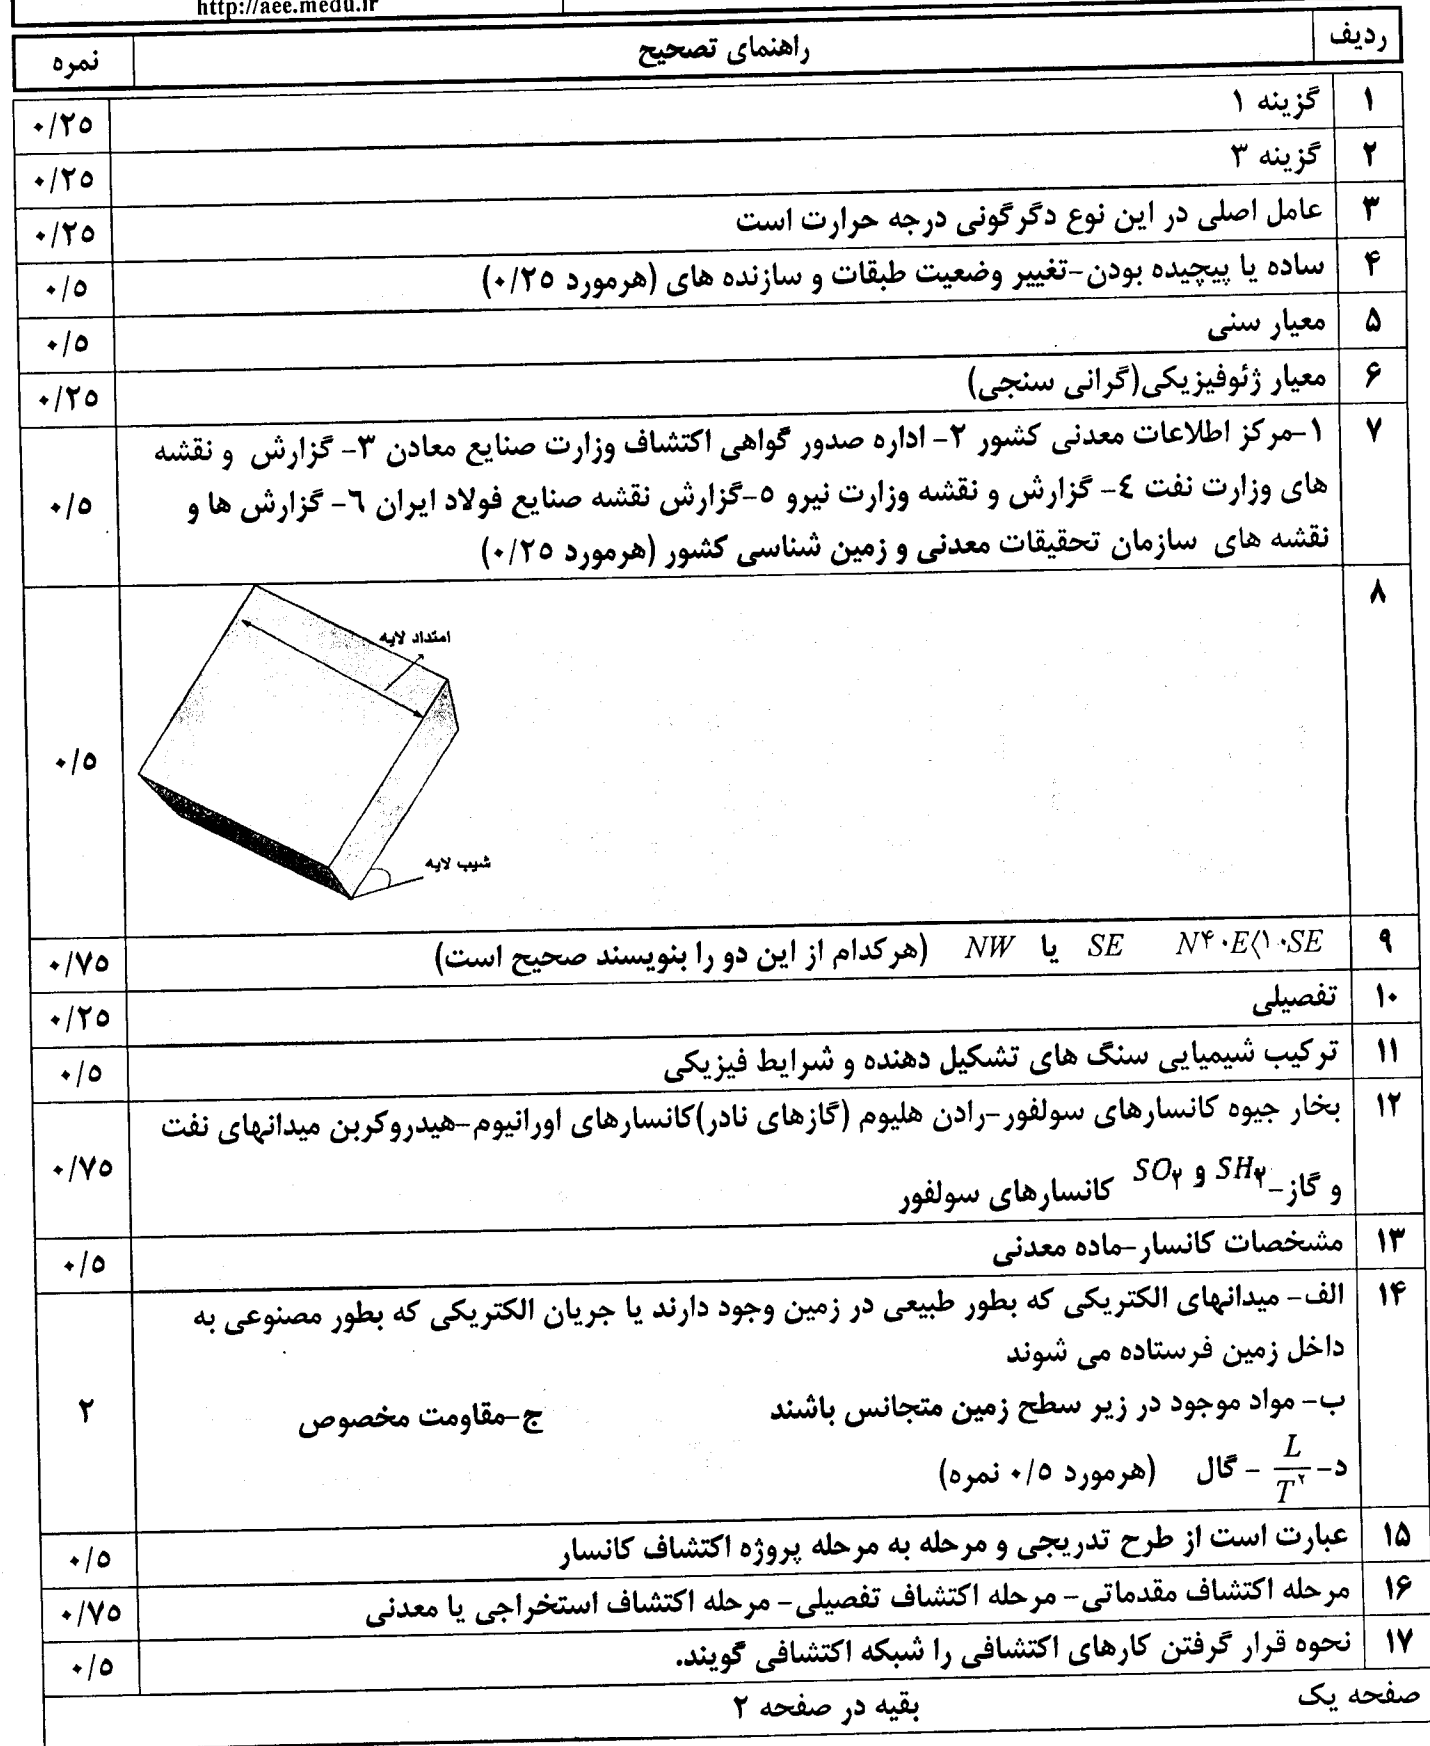 http://aee.medu.ir
ردیف راهنمای تصحیح نمره
۱ گزینه ۱ ۰/۲۵
۲ گزینه ۳ ۰/۲۵
۳ عامل اصلی در این نوع دگرگونی درجه حرارت است ۰/۲۵
۴ ساده یا پیچیده بودن-تغییر وضعیت طبقات و سازنده های (هرمورد ۰/۲۵) ۰/۵
۵ معیار سنی ۰/۵
۶ معیار ژئوفیزیکی(گرانی سنجی) ۰/۲۵
۷ ۱-مرکز اطلاعات معدنی کشور ۲- اداره صدور گواهی اکتشاف وزارت صنایع معادن ۳- گزارش و نقشه
های وزارت نفت ٤- گزارش و نقشه وزارت نیرو ٥-گزارش نقشه صنایع فولاد ایران ٦- گزارش ها و ۰/۵
نقشه های سازمان تحقیقات معدنی و زمین شناسی کشور (هرمورد ۰/۲۵)
۸
امتداد لایه
۰/۵
شیب لایه
۹ N۴۰E⟨۱۰SE SE یا NW (هرکدام از این دو را بنویسند صحیح است) ۰/۷۵
۱۰ تفصیلی ۰/۲۵
۱۱ ترکیب شیمیایی سنگ های تشکیل دهنده و شرایط فیزیکی ۰/۵
۱۲ بخار جیوه کانسارهای سولفور-رادن هلیوم (گازهای نادر)کانسارهای اورانیوم-هیدروکربن میدانهای نفت
و گاز-SH۲ و SO۲ کانسارهای سولفور ۰/۷۵
۱۳ مشخصات کانسار-ماده معدنی ۰/۵
۱۴ الف- میدانهای الکتریکی که بطور طبیعی در زمین وجود دارند یا جریان الکتریکی که بطور مصنوعی به
داخل زمین فرستاده می شوند
ب- مواد موجود در زیر سطح زمین متجانس باشند ج-مقاومت مخصوص ۲
د- L/T۲ - گال (هرمورد ۰/۵ نمره)
۱۵ عبارت است از طرح تدریجی و مرحله به مرحله پروژه اکتشاف کانسار ۰/۵
۱۶ مرحله اکتشاف مقدماتی- مرحله اکتشاف تفصیلی- مرحله اکتشاف استخراجی یا معدنی ۰/۷۵
۱۷ نحوه قرار گرفتن کارهای اکتشافی را شبکه اکتشافی گویند. ۰/۵
صفحه یک بقیه در صفحه ۲